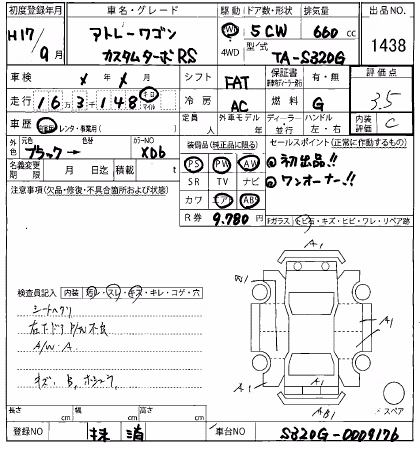 初度登録年月
車名・グレード
駆動
ドア数・形状
排気量
出品NO.
H17/9月
アトレーワゴン
カスタムターボRS
2WD
4WD
5CW
660 cc
型式
TA-S320G
1438
車検
年 月
シフト
FAT
保証書
有・無
評価点
3.5
走行
16万3千148
キロ
マイル
冷房
AC
燃料
G
車歴
自家用・レンタ・事業用( )
定員
人
外車モデル
年
ディーラー
並行
ハンドル
左・右
内装評価
C
外色
元色
ブラック
色替
カラーNO
X06
装備品(純正品に限る)
セールスポイント(正常に作動するもの)
名義変更期限
月 日
積載
t
PS
PW
AW
◎初出品!!
SR
TV
ナビ
◎ワンオーナー!!
注意事項(欠品・修復・不具合箇所および状態)
カワ
エアB
ABS
R券
9.780
円
Fガラス
トビ石・キズ・ヒビ・ワレ・リペア跡
検査員記入
内装
汚レ・スレ・キズ・キレ・コゲ・穴
シートヘタリ
A/W・A
A1
W1
A1
A1
A1
AB1
スペア
長さ
cm
幅
cm
高さ
cm
登録NO
抹消
車台NO
S320G-0009176